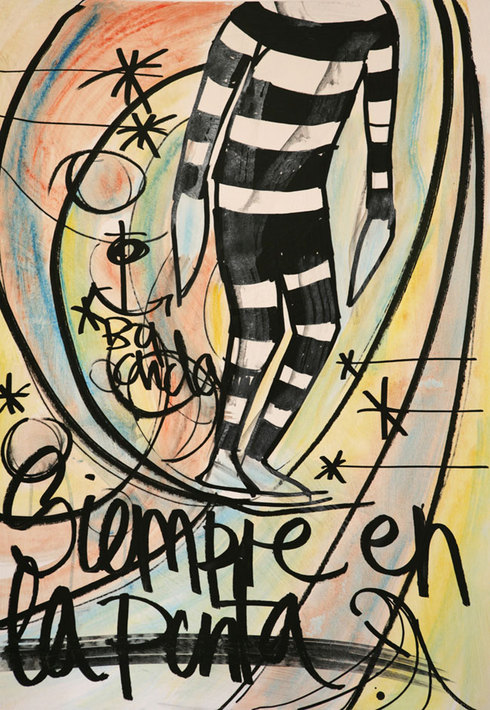 Ba
anda
Siempre en
la punta